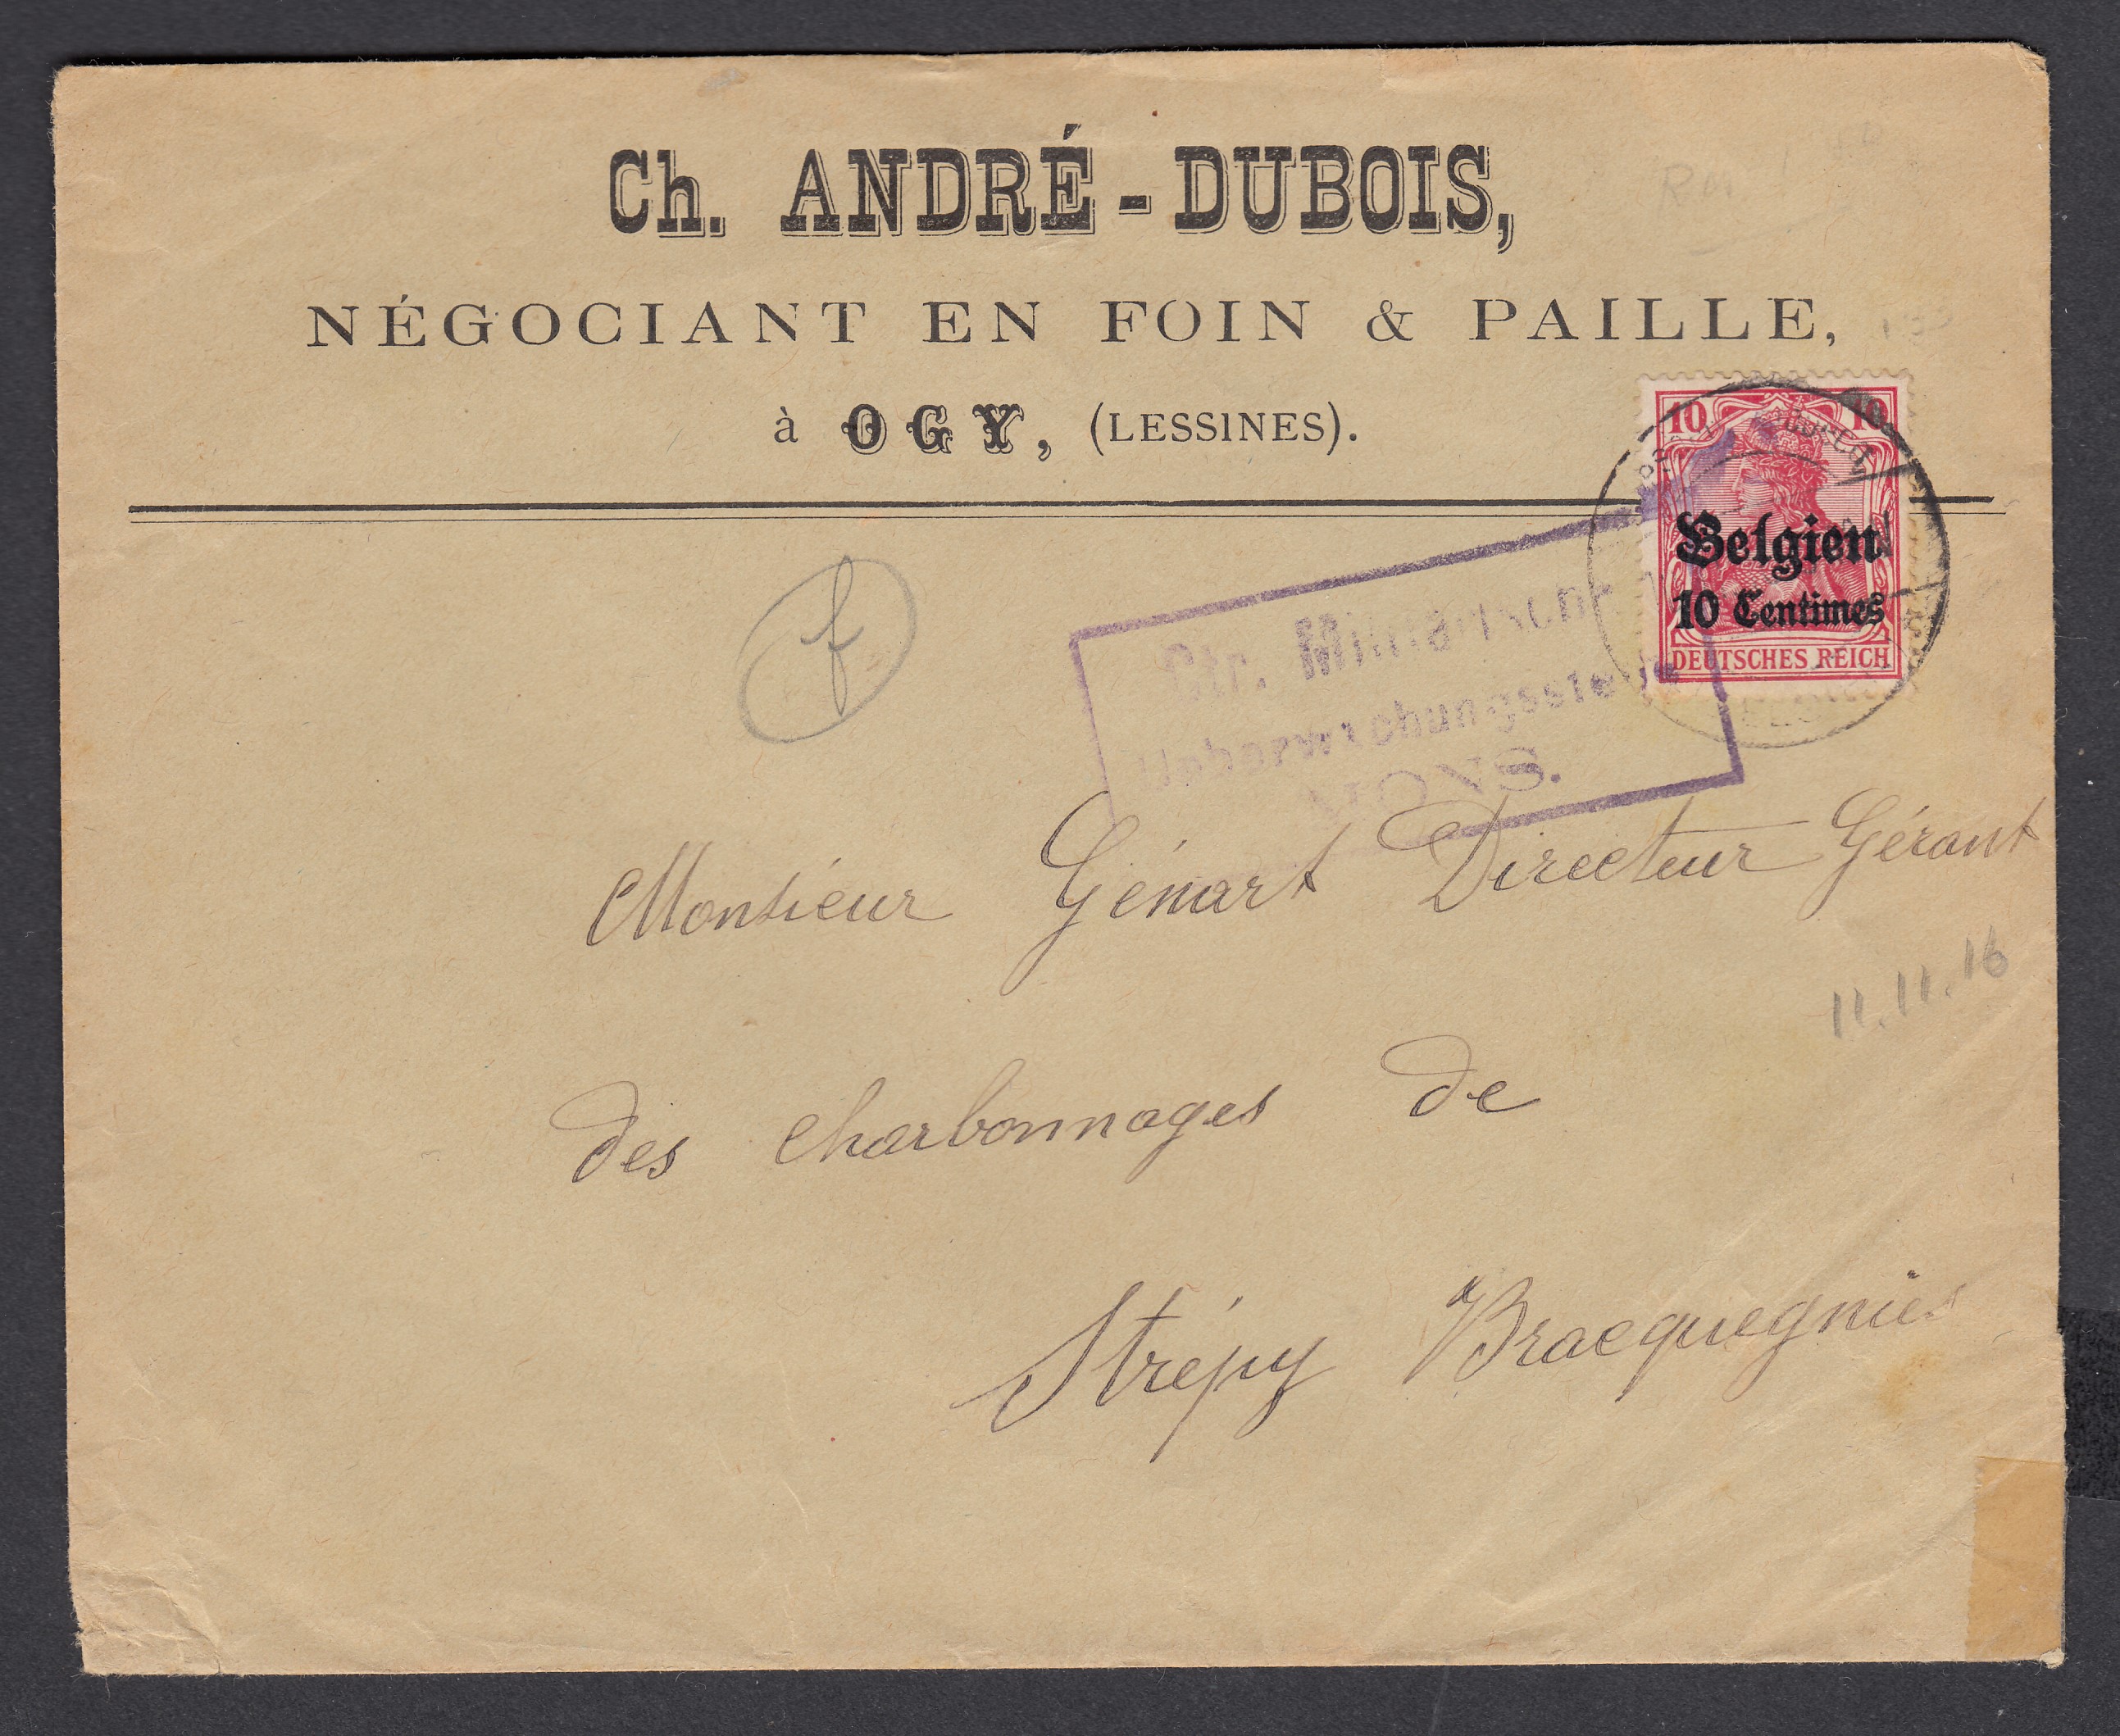 Ch. ANDRÉ-DUBOIS,
NÉGOCIANT EN FOIN & PAILLE,
à OGY, (LESSINES).
10 10
Belgien
10 Centimes
DEUTSCHES REICH
f
Militärische
Ueberwachungsstelle
MONS.
Monsieur Génart Directeur Gérant
11.11.16
des charbonnages de
Strépy Bracquegnies